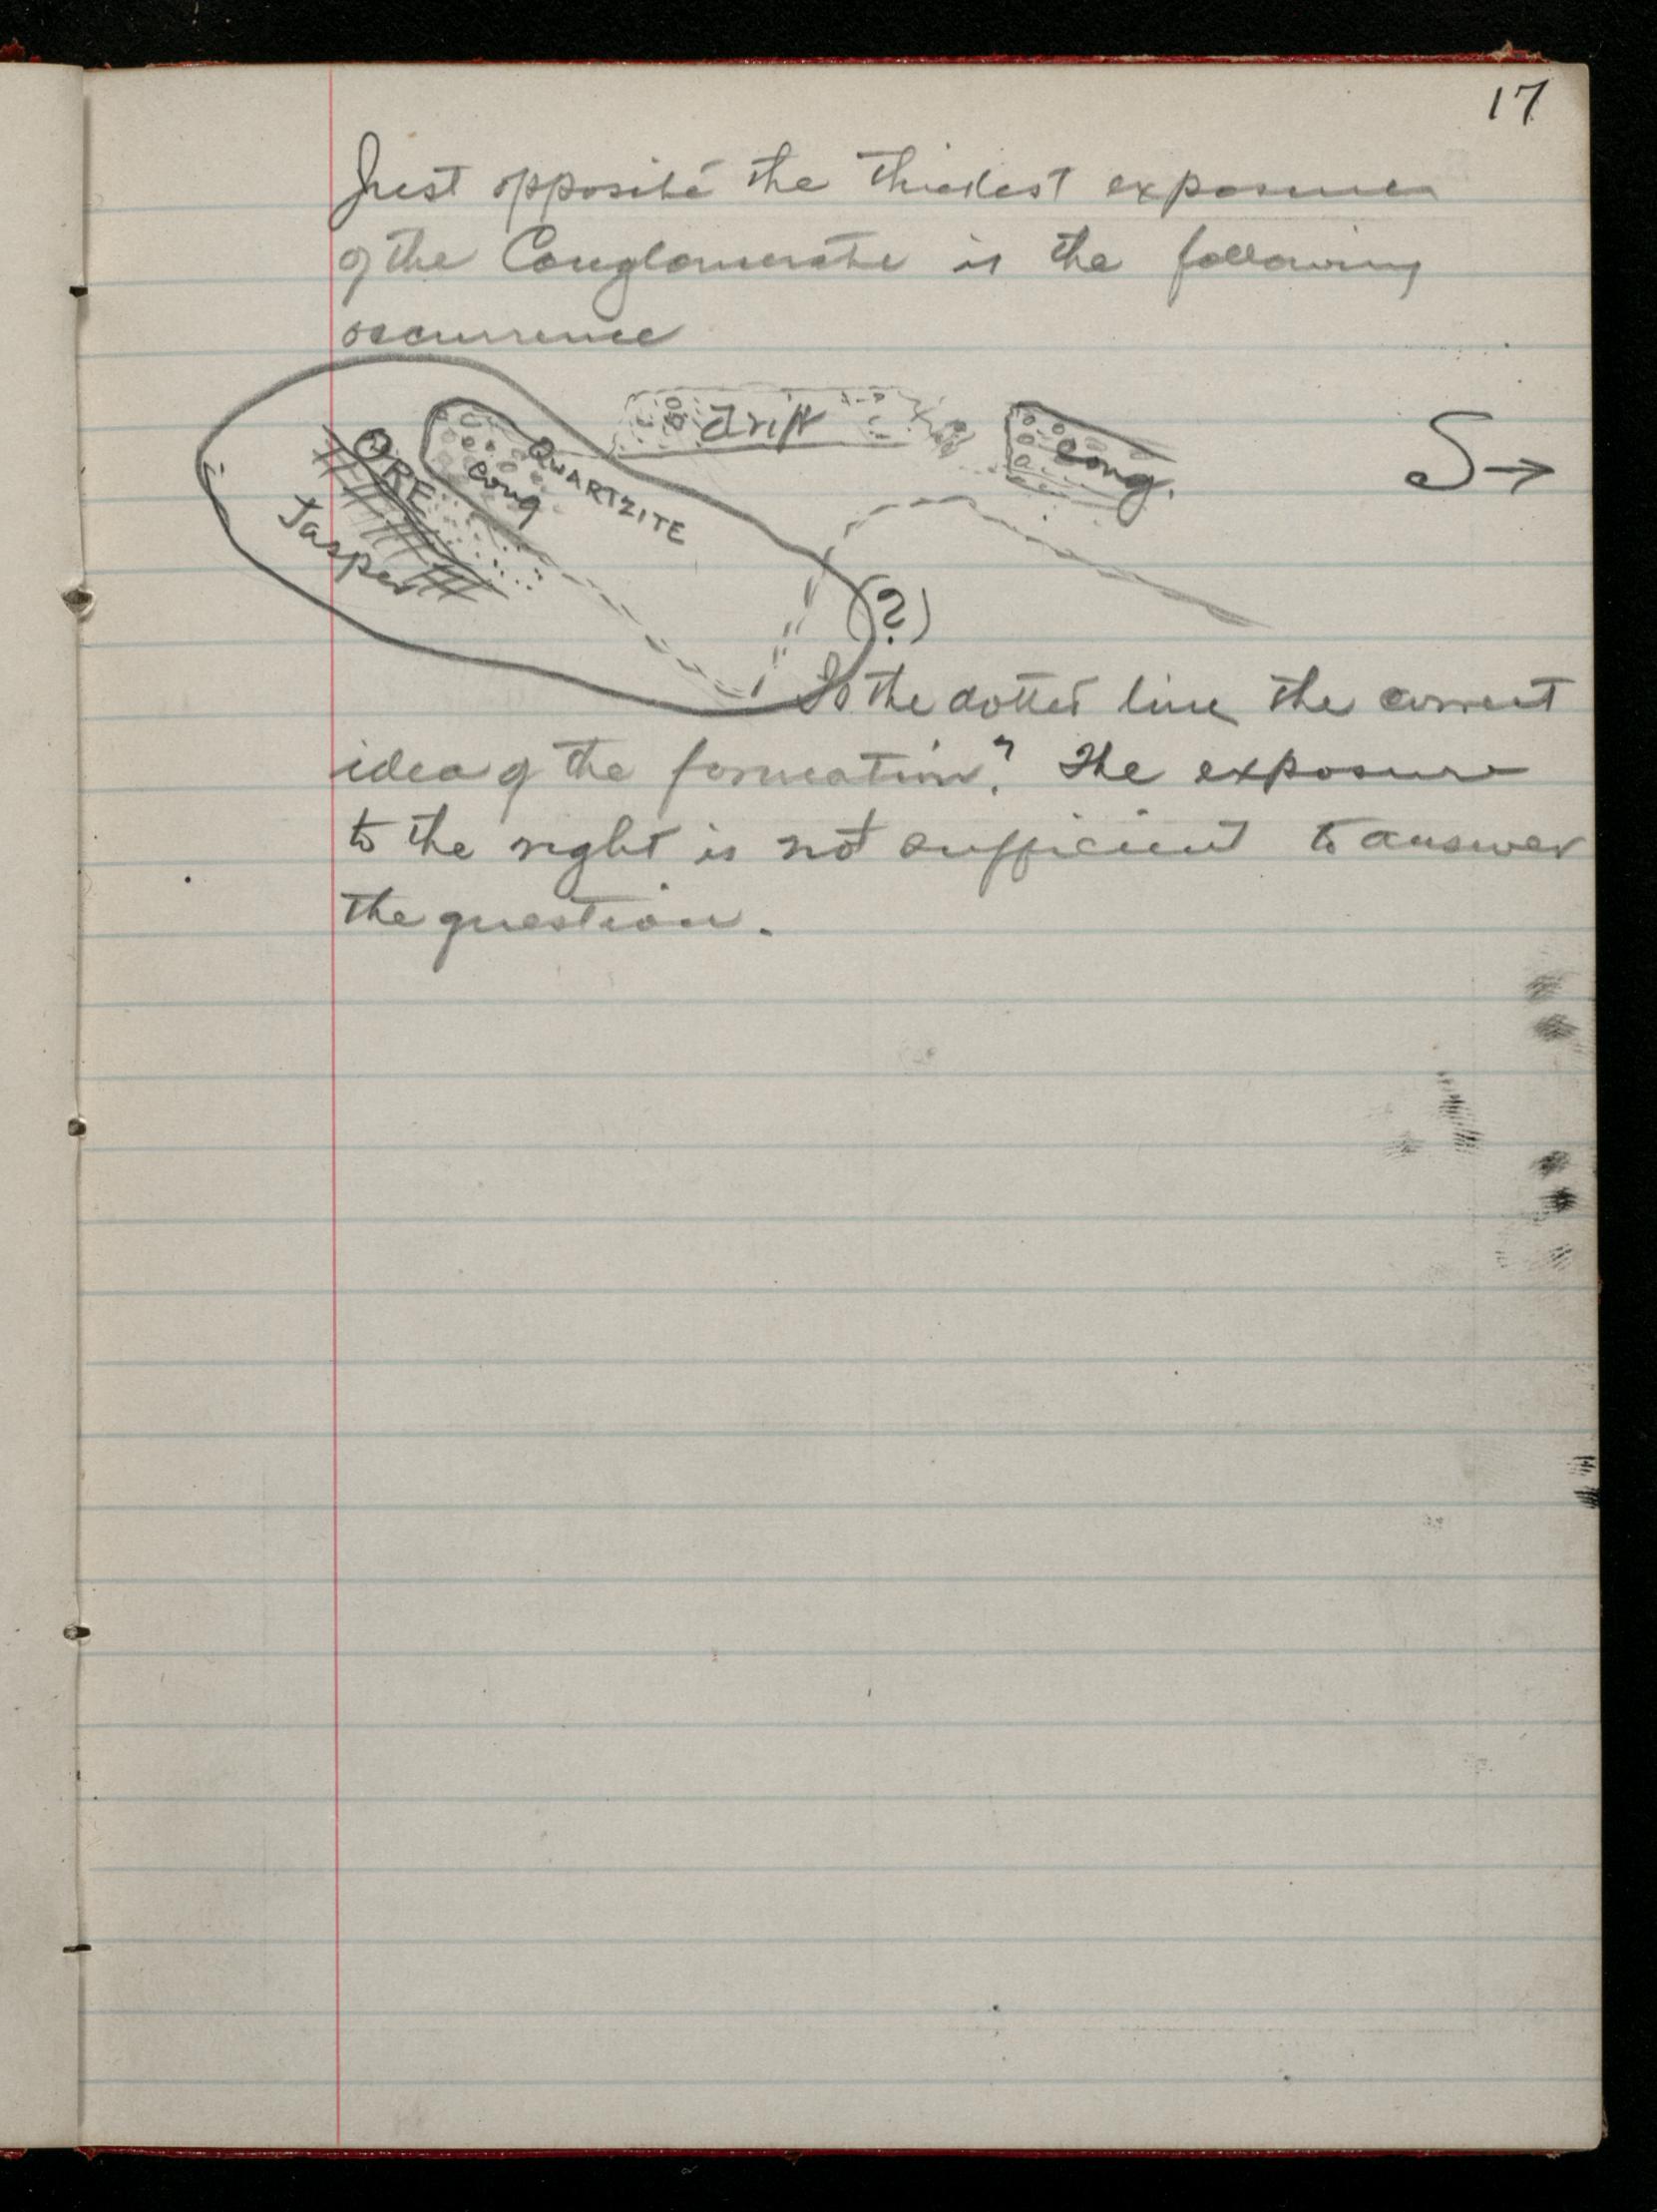 17
Just opposite the thickest exposure
of the Conglomerate is the following
occurrence
drift
ORE
Cong
QUARTZITE
Cong.
S→
Jasper
(?)
Is the dotted line the correct
idea of the formation? The exposure
to the right is not sufficient to answer
the question.